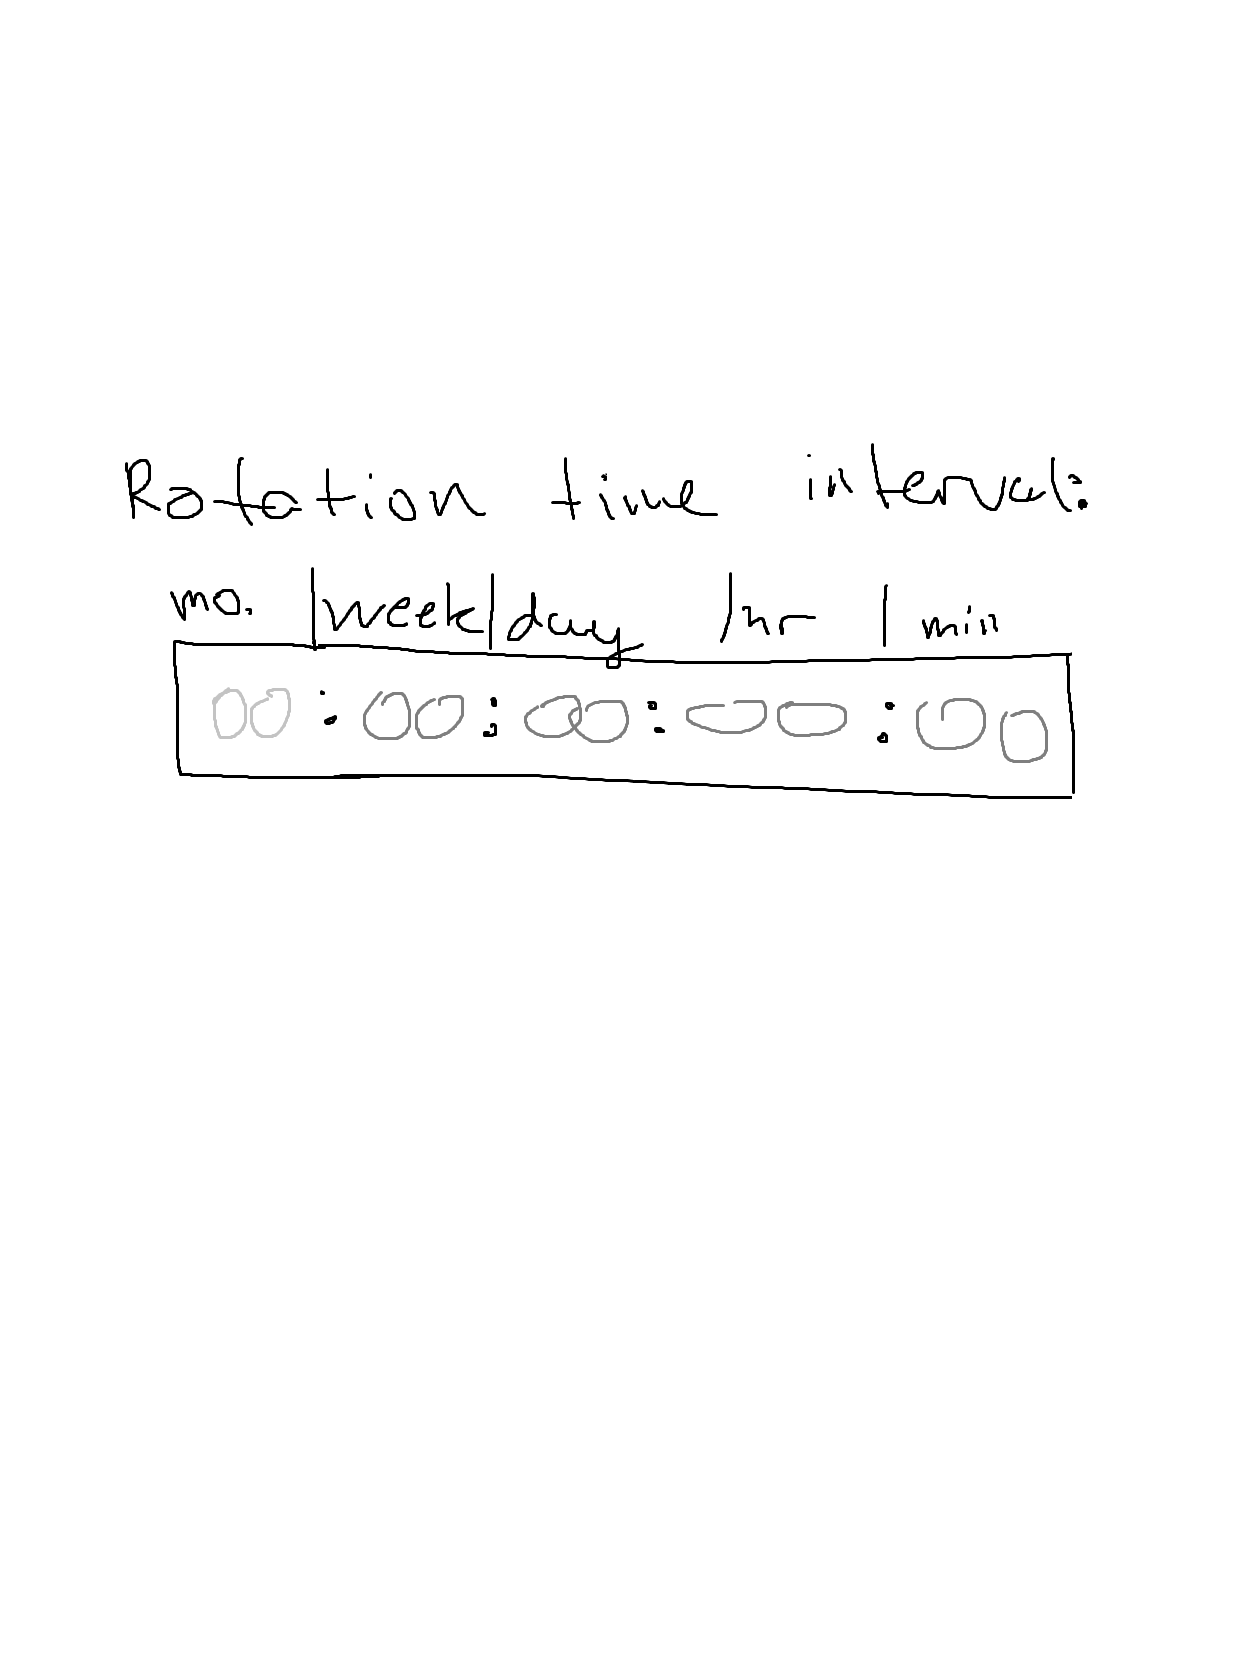 Rotation time interval:
mo. /week/day /hr / min
00 : 00 : 00 : 00 : 00